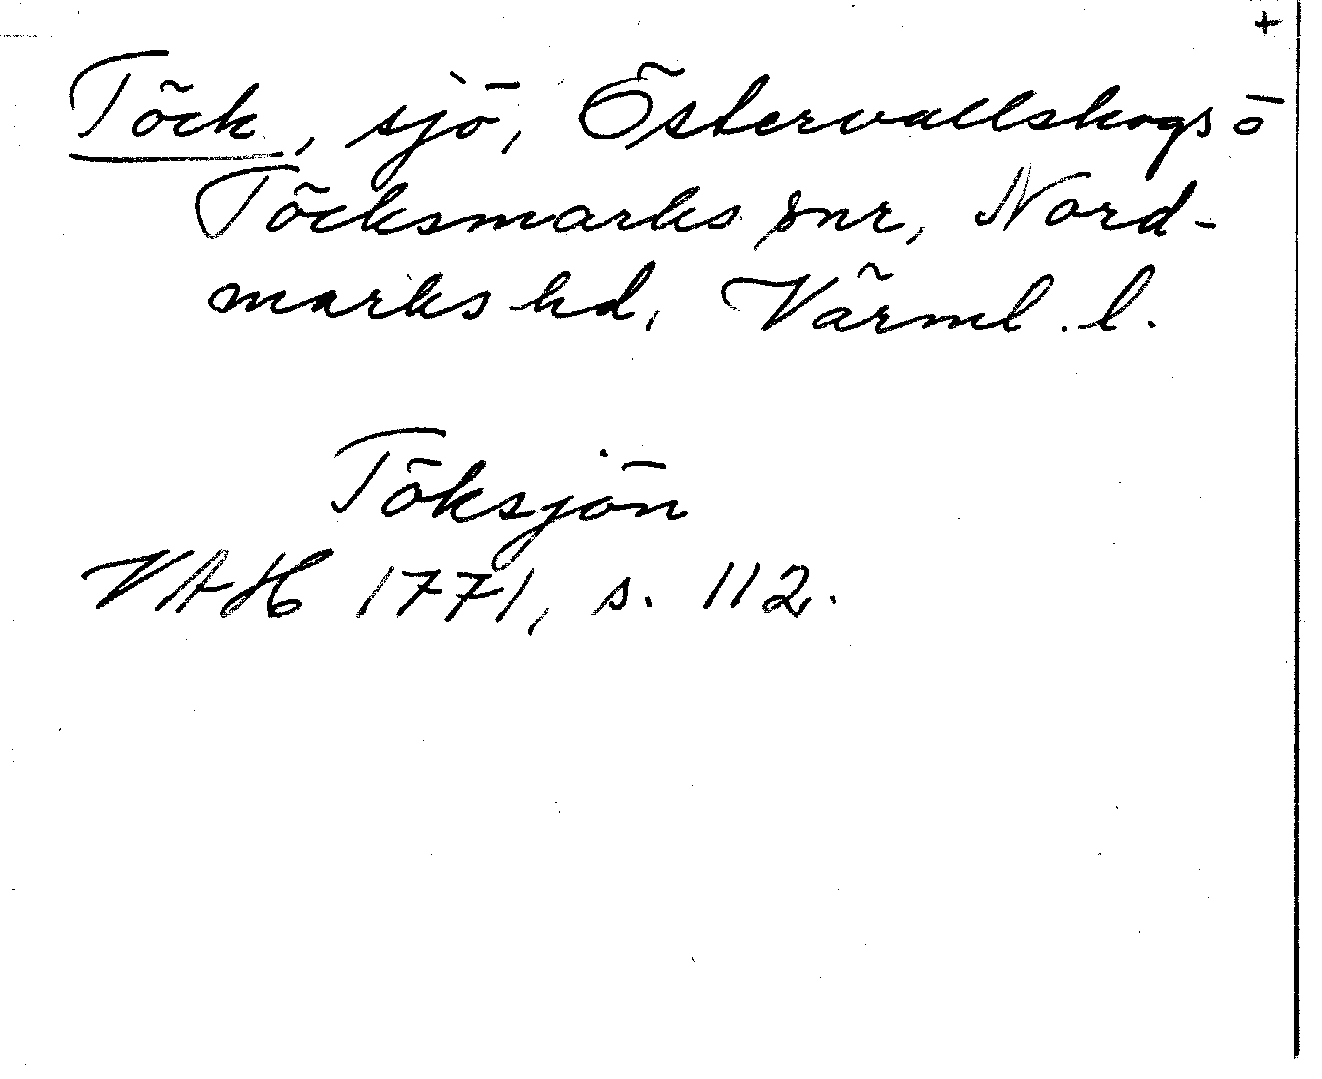 +
Töck, sjö, Östervallskogs o
Töcksmarks snr, Nord-
marks hd, Värml. l.
Töksjön
VAH 1771, s. 112.